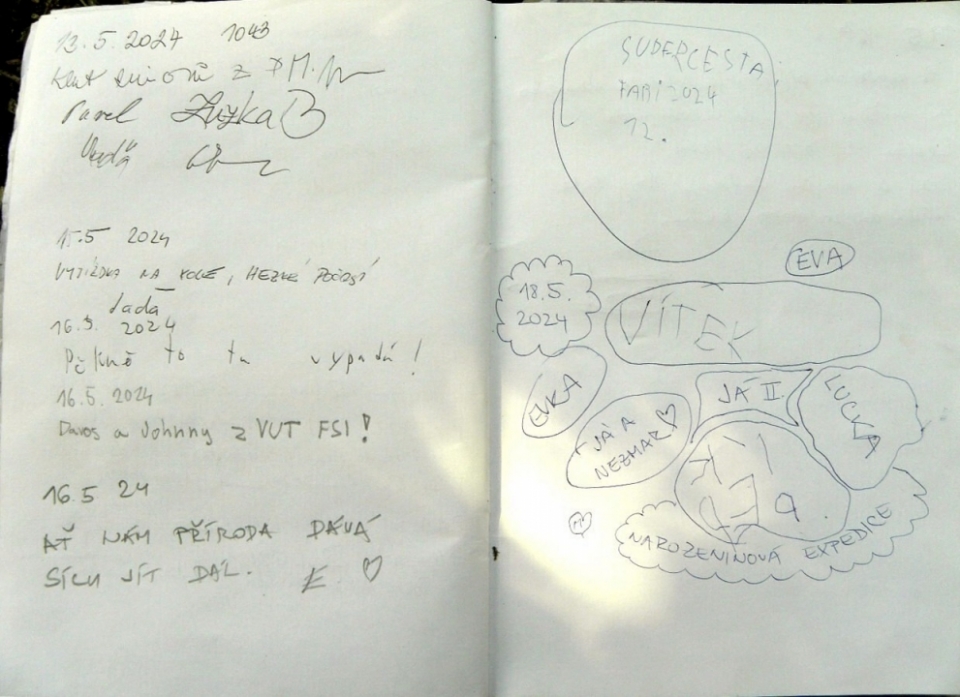 13.5.2024 1043
Klub seniorů z
Pavel Zuzka B
15.5 2024
VYJÍŽĎKA NA KOLE, HEZKÉ POČASÍ
Jada
16.5. 2024
Pěkně to tu vypadá!
16.5.2024
Davos a Johnny z VUT FSI!
16.5 24
AŤ NÁM PŘÍRODA DÁVÁ
SÍLU JÍT DÁL. E ♡
SUPERCESTA
FABI 2024
12.
EVA
18.5.
2024
VÍTEK
EVKA
JÁ A
NEZMAR ♡
JÁ II.
LUCKA
NAROZENINOVÁ EXPEDICE